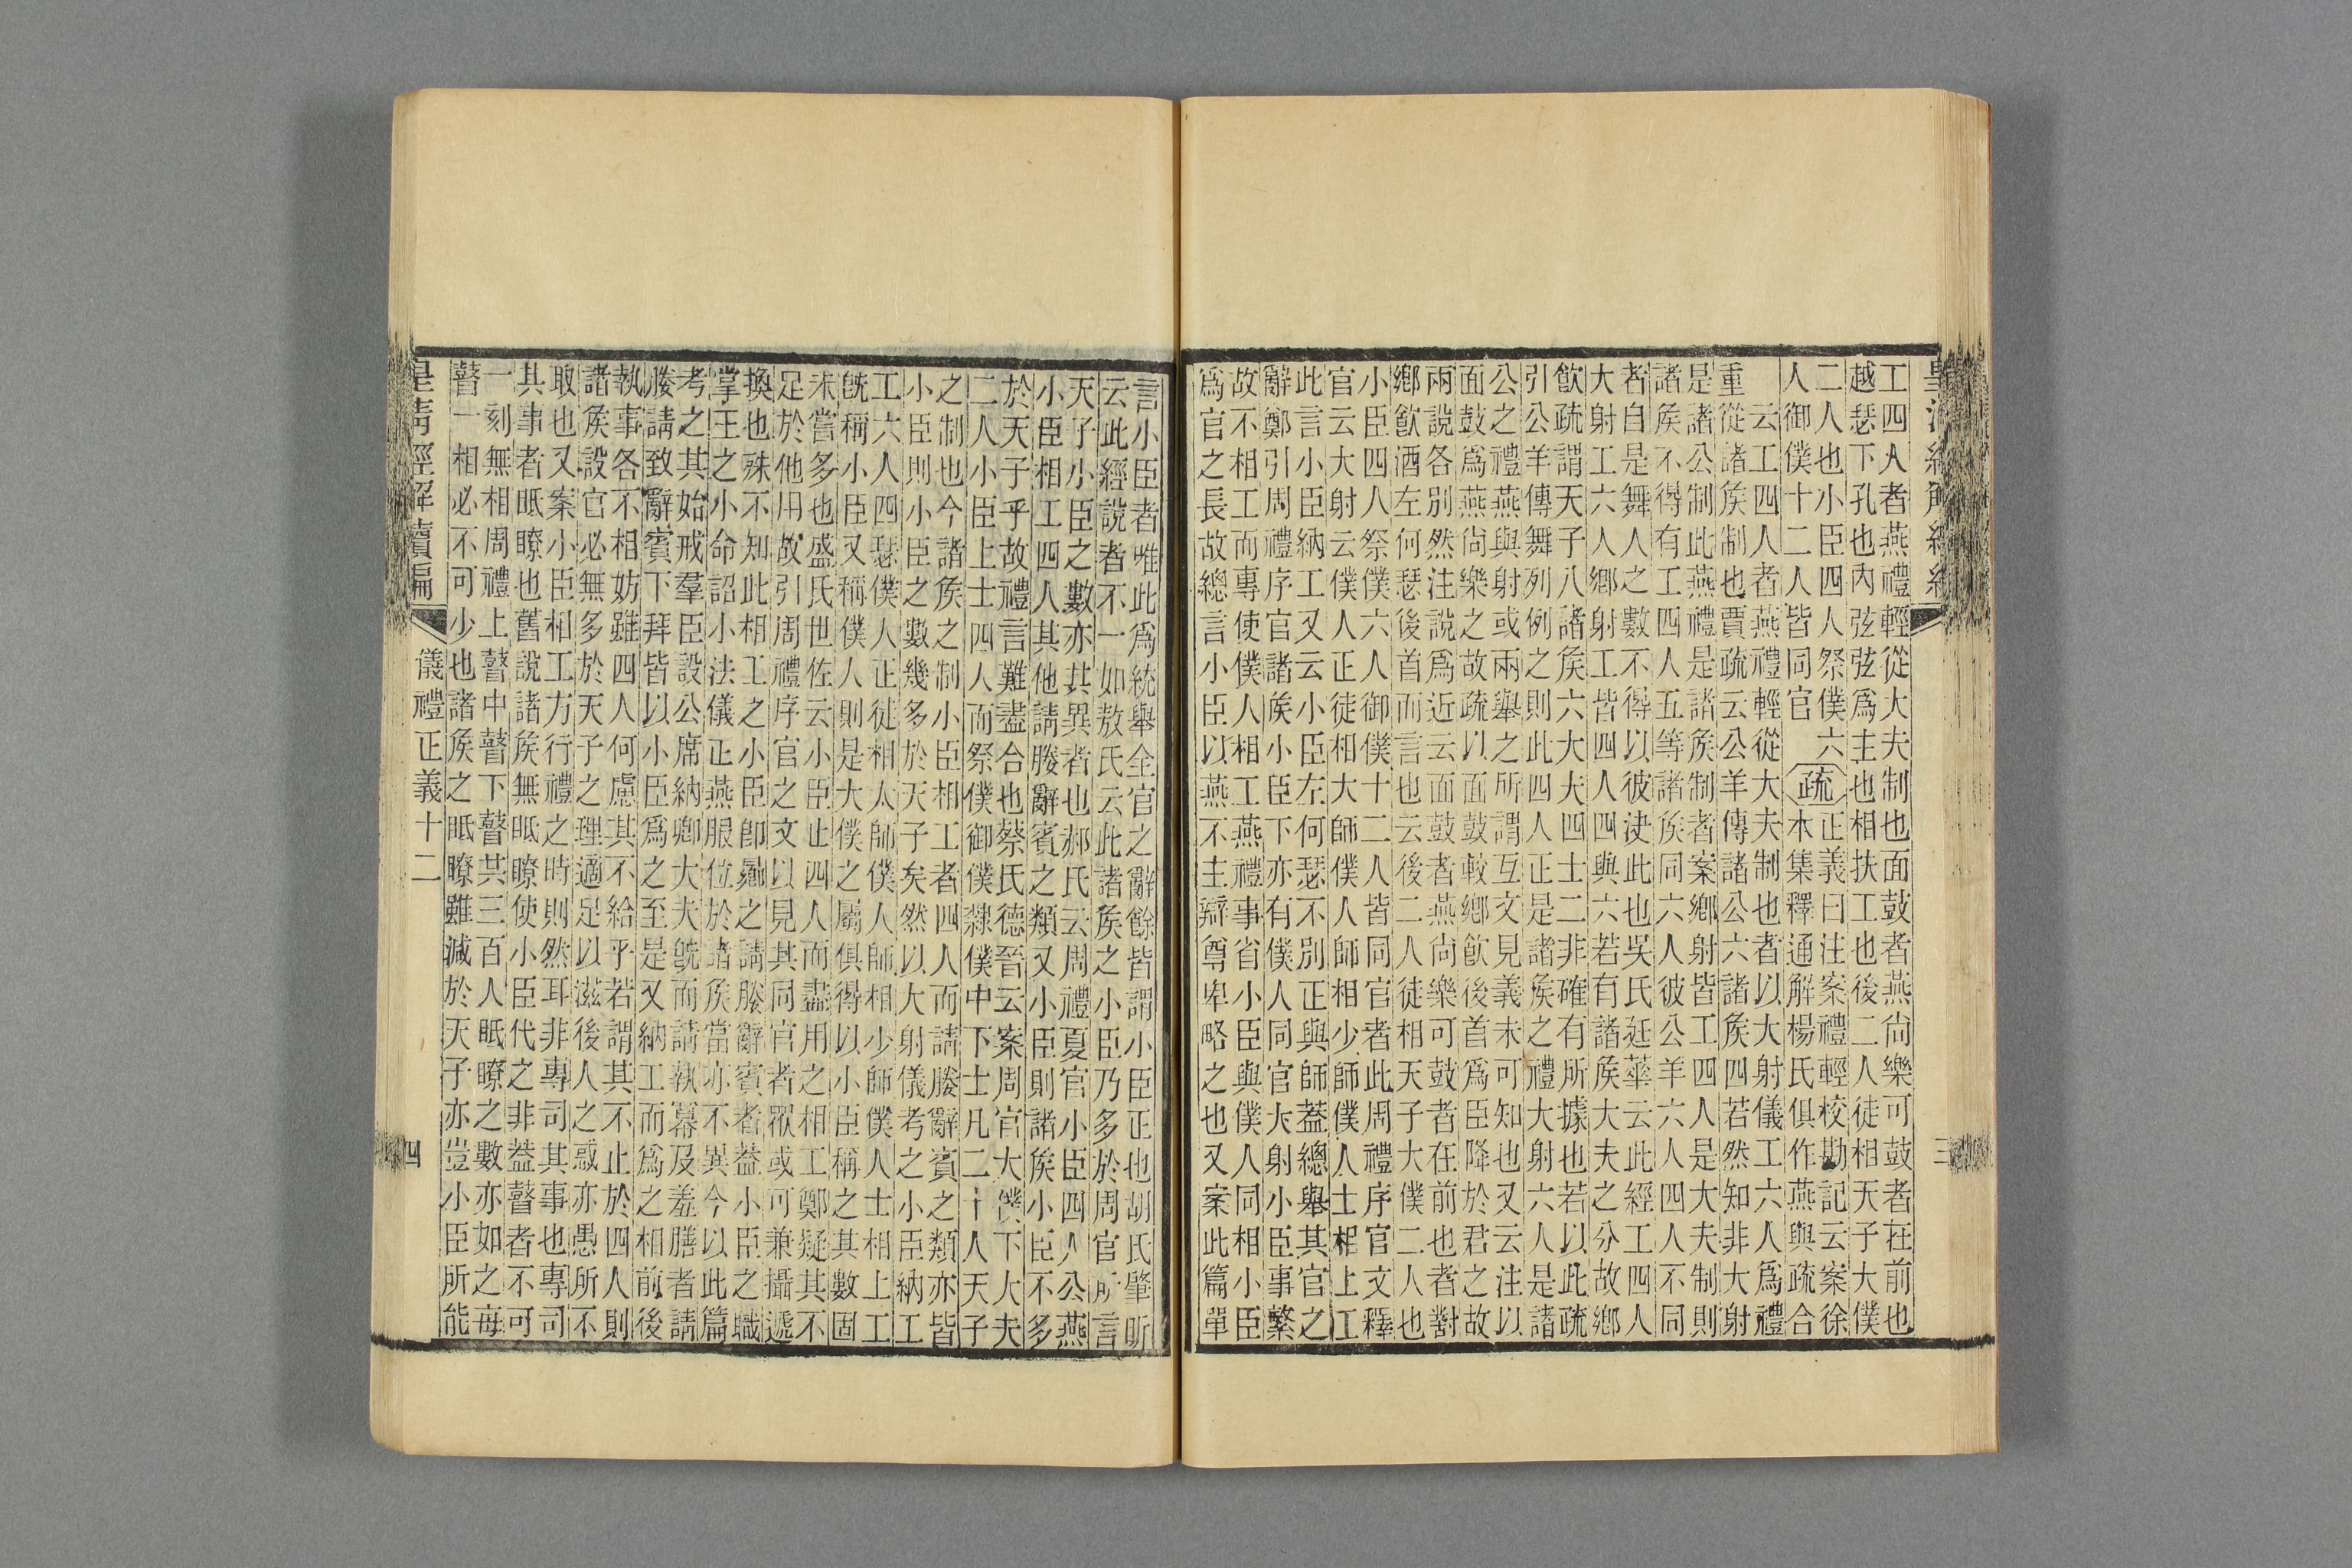 皇清經解續編
三
工四人者燕禮輕從大夫制也面鼓者燕尙樂可鼓者在前也
越瑟下孔也內弦弦爲主也相扶工也後二人徒相天子大僕
二人也小臣四人祭僕六
人御僕十二人皆同官
疏
正義曰注案禮輕校勘記云案徐
本集釋通解楊氏俱作燕與疏合
云工四人者燕禮輕從大夫制也者以大射儀工六人爲禮
重從諸矦制也賈疏云公羊傳諸公六諸矦四若然知非大射
是諸公制此燕禮是諸矦制者案鄉射皆工四人是大夫制則
諸矦不得有工四人五等諸矦同六人彼公羊六人四人不同
者自是舞人之數不得以彼決此也吳氏廷華云此經工四人
大射工六人鄉射工皆四人四與六若有諸矦大夫之分故鄉
飮疏謂天子八諸矦六大夫四士二非確有所據也若以此疏
引公羊傳舞列例之則此四人正是諸矦之禮大射六人是諸
公之禮燕與射或兩舉之所謂互文見義未可知也又云注以
面鼓爲燕尙樂之故疏以面鼓較鄉飮後首爲臣降於君之故
兩說各別然注說爲近云面鼓者燕尙樂可鼓者在前也者對
鄉飮酒左何瑟後首而言也云後二人徒相天子大僕二人也
小臣四人祭僕六人御僕十二人皆同官者此周禮序官文釋
官云大射云僕人正徒相大師僕人師相少師僕人士相上工
此言小臣納工又云小臣左何瑟不別正與師葢總舉其官之
辭鄭引周禮序官諸矦小臣下亦有僕人同官大射小臣事繁
故不相工而專使僕人相工燕禮事省小臣與僕人同相小臣
爲官之長故總言小臣以燕不主辯尊卑略之也又案此篇單
言小臣者唯此爲統舉全官之辭餘皆謂小臣正也胡氏肇昕
云此經說者不一如敖氏云此諸矦之小臣乃多於周官所言
天子小臣之數亦其異者也郝氏云周禮夏官小臣四人公燕
小臣相工四人其他請媵辭賓之類又小臣則諸矦小臣不多
於天子乎故禮言難盡合也蔡氏德晉云案周官大僕下大夫
二人小臣上士四人而祭僕御僕隸僕中下士凡二十人天子
之制也今諸矦之制小臣相工者四人而請媵辭賓之類亦皆
小臣則小臣之數幾多於天子矣然以大射儀考之小臣納工
工六人四瑟僕人正徒相大師僕人師相少師僕人士相上工
旣稱小臣又稱僕人則是大僕之屬俱得以小臣稱之其數固
未嘗多也盛氏世佐云小臣止四人而盡用之相工鄭疑其不
足於他用故引周禮序官之文以見其同官者衆或可兼攝遞
換也殊不知此相工之小臣卽曏之請媵辭賓者葢小臣之職
掌王之小命詔小法儀正燕服位於諸矦當亦不異今以此篇
考之其始戒羣臣設公席納卿大夫旣而請執冪及羞膳者請
媵請致辭賓下拜皆以小臣爲之至是又納工而爲之相前後
執事各不相妨雖四人何慮其不給乎若謂其不止於四人則
諸矦設官必無多於天子之理適足以滋後人之惑亦愚所不
取也又案小臣相工方行禮之時則然耳非專司其事也專司
其事者眡瞭也舊說諸矦無眡瞭使小臣代之非葢瞽者不可
一刻無相周禮上瞽中瞽下瞽共三百人眡瞭之數亦如之每
瞽一相必不可少也諸矦之眡瞭雖減於天子亦豈小臣所能
皇淸經解續編
儀禮正義十二
四